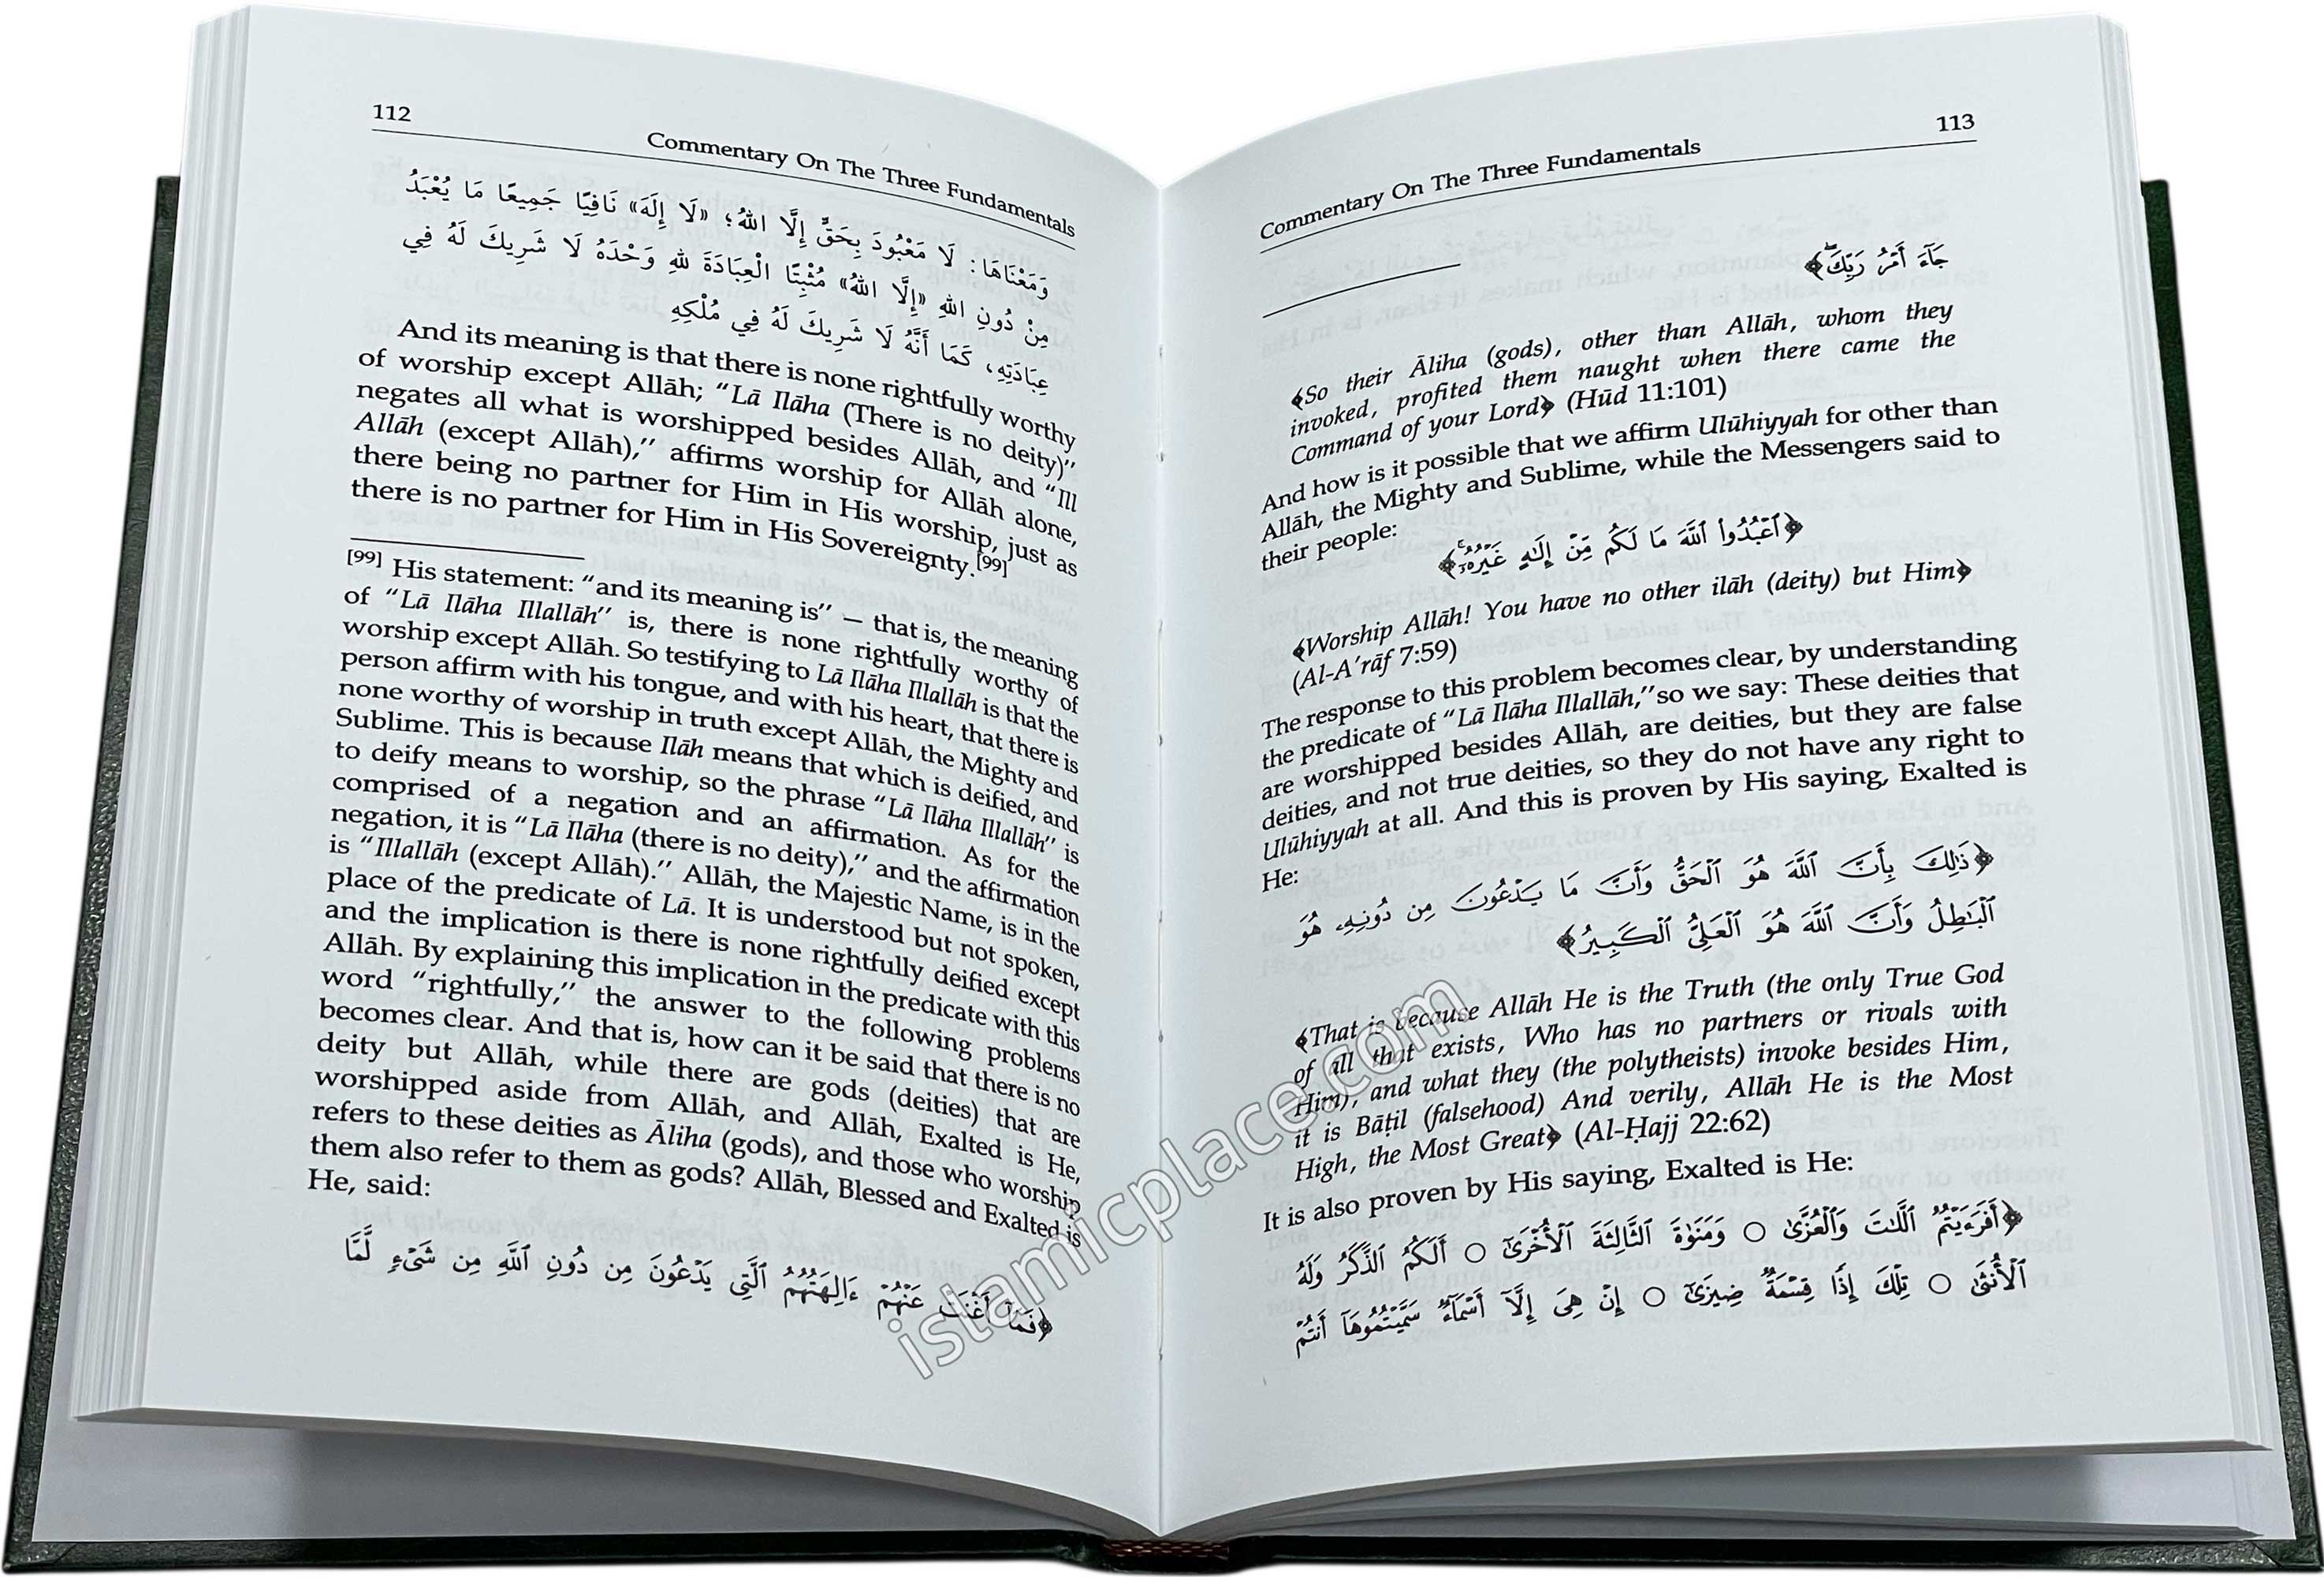 112
Commentary On The Three Fundamentals
وَمَعْنَاهَا: لَا مَعْبُودَ بِحَقٍّ إِلَّا اللهُ؛ «لَا إِلَهَ» نَافِيًا جَمِيعًا مَا يُعْبَدُ
مِنْ دُونِ اللهِ «إِلَّا اللهُ» مُثْبِتًا الْعِبَادَةَ لِلهِ وَحْدَهُ لَا شَرِيكَ لَهُ فِي
عِبَادَتِهِ، كَمَا أَنَّهُ لَا شَرِيكَ لَهُ فِي مُلْكِهِ
And its meaning is that there is none rightfully worthy
of worship except Allāh; “Lā Ilāha (There is no deity)”
negates all what is worshipped besides Allāh, and “Ill
Allāh (except Allāh),” affirms worship for Allāh alone,
there being no partner for Him in His worship, just as
there is no partner for Him in His Sovereignty.[99]
[99] His statement: “and its meaning is” — that is, the meaning
of “Lā Ilāha Illallāh” is, there is none rightfully worthy of
worship except Allāh. So testifying to Lā Ilāha Illallāh is that the
person affirm with his tongue, and with his heart, that there is
none worthy of worship in truth except Allāh, the Mighty and
Sublime. This is because Ilāh means that which is deified, and
to deify means to worship, so the phrase “Lā Ilāha Illallāh” is
comprised of a negation and an affirmation. As for the
negation, it is “Lā Ilāha (there is no deity),” and the affirmation
is “Illallāh (except Allāh).” Allāh, the Majestic Name, is in the
place of the predicate of Lā. It is understood but not spoken,
and the implication is there is none rightfully deified except
Allāh. By explaining this implication in the predicate with this
word “rightfully,” the answer to the following problems
becomes clear. And that is, how can it be said that there is no
deity but Allāh, while there are gods (deities) that are
worshipped aside from Allāh, and Allāh, Exalted is He,
refers to these deities as Āliha (gods), and those who worship
them also refer to them as gods? Allāh, Blessed and Exalted is
He, said:
﴿فَمَآ أَغْنَتْ عَنْهُمْ ءَالِهَتُهُمُ ٱلَّتِى يَدْعُونَ مِن دُونِ ٱللَّهِ مِن شَىْءٍ لَّمَّا
113
Commentary On The Three Fundamentals
جَآءَ أَمْرُ رَبِّكَ﴾
﴿So their Āliha (gods), other than Allāh, whom they
invoked, profited them naught when there came the
Command of your Lord﴾ (Hūd 11:101)
And how is it possible that we affirm Ulūhiyyah for other than
Allāh, the Mighty and Sublime, while the Messengers said to
their people:
﴿ٱعْبُدُوا۟ ٱللَّهَ مَا لَكُم مِّنْ إِلَٰهٍ غَيْرُهُۥٓ﴾
﴿Worship Allāh! You have no other ilāh (deity) but Him﴾
(Al-A’rāf 7:59)
The response to this problem becomes clear, by understanding
the predicate of “Lā Ilāha Illallāh,” so we say: These deities that
are worshipped besides Allāh, are deities, but they are false
deities, and not true deities, so they do not have any right to
Ulūhiyyah at all. And this is proven by His saying, Exalted is
He:
﴿ذَٰلِكَ بِأَنَّ ٱللَّهَ هُوَ ٱلْحَقُّ وَأَنَّ مَا يَدْعُونَ مِن دُونِهِۦ هُوَ
ٱلْبَٰطِلُ وَأَنَّ ٱللَّهَ هُوَ ٱلْعَلِىُّ ٱلْكَبِيرُ﴾
﴿That is because Allāh He is the Truth (the only True God
of all that exists, Who has no partners or rivals with
Him), and what they (the polytheists) invoke besides Him,
it is Bāṭil (falsehood) And verily, Allāh He is the Most
High, the Most Great﴾ (Al-Ḥajj 22:62)
It is also proven by His saying, Exalted is He:
﴿أَفَرَءَيْتُمُ ٱللَّٰتَ وَٱلْعُزَّىٰ ○ وَمَنَوٰةَ ٱلثَّالِثَةَ ٱلْأُخْرَىٰٓ ○ أَلَكُمُ ٱلذَّكَرُ وَلَهُ
ٱلْأُنثَىٰ ○ تِلْكَ إِذًا قِسْمَةٌ ضِيزَىٰٓ ○ إِنْ هِىَ إِلَّآ أَسْمَآءٌ سَمَّيْتُمُوهَآ أَنتُمْ
islamicplace.com